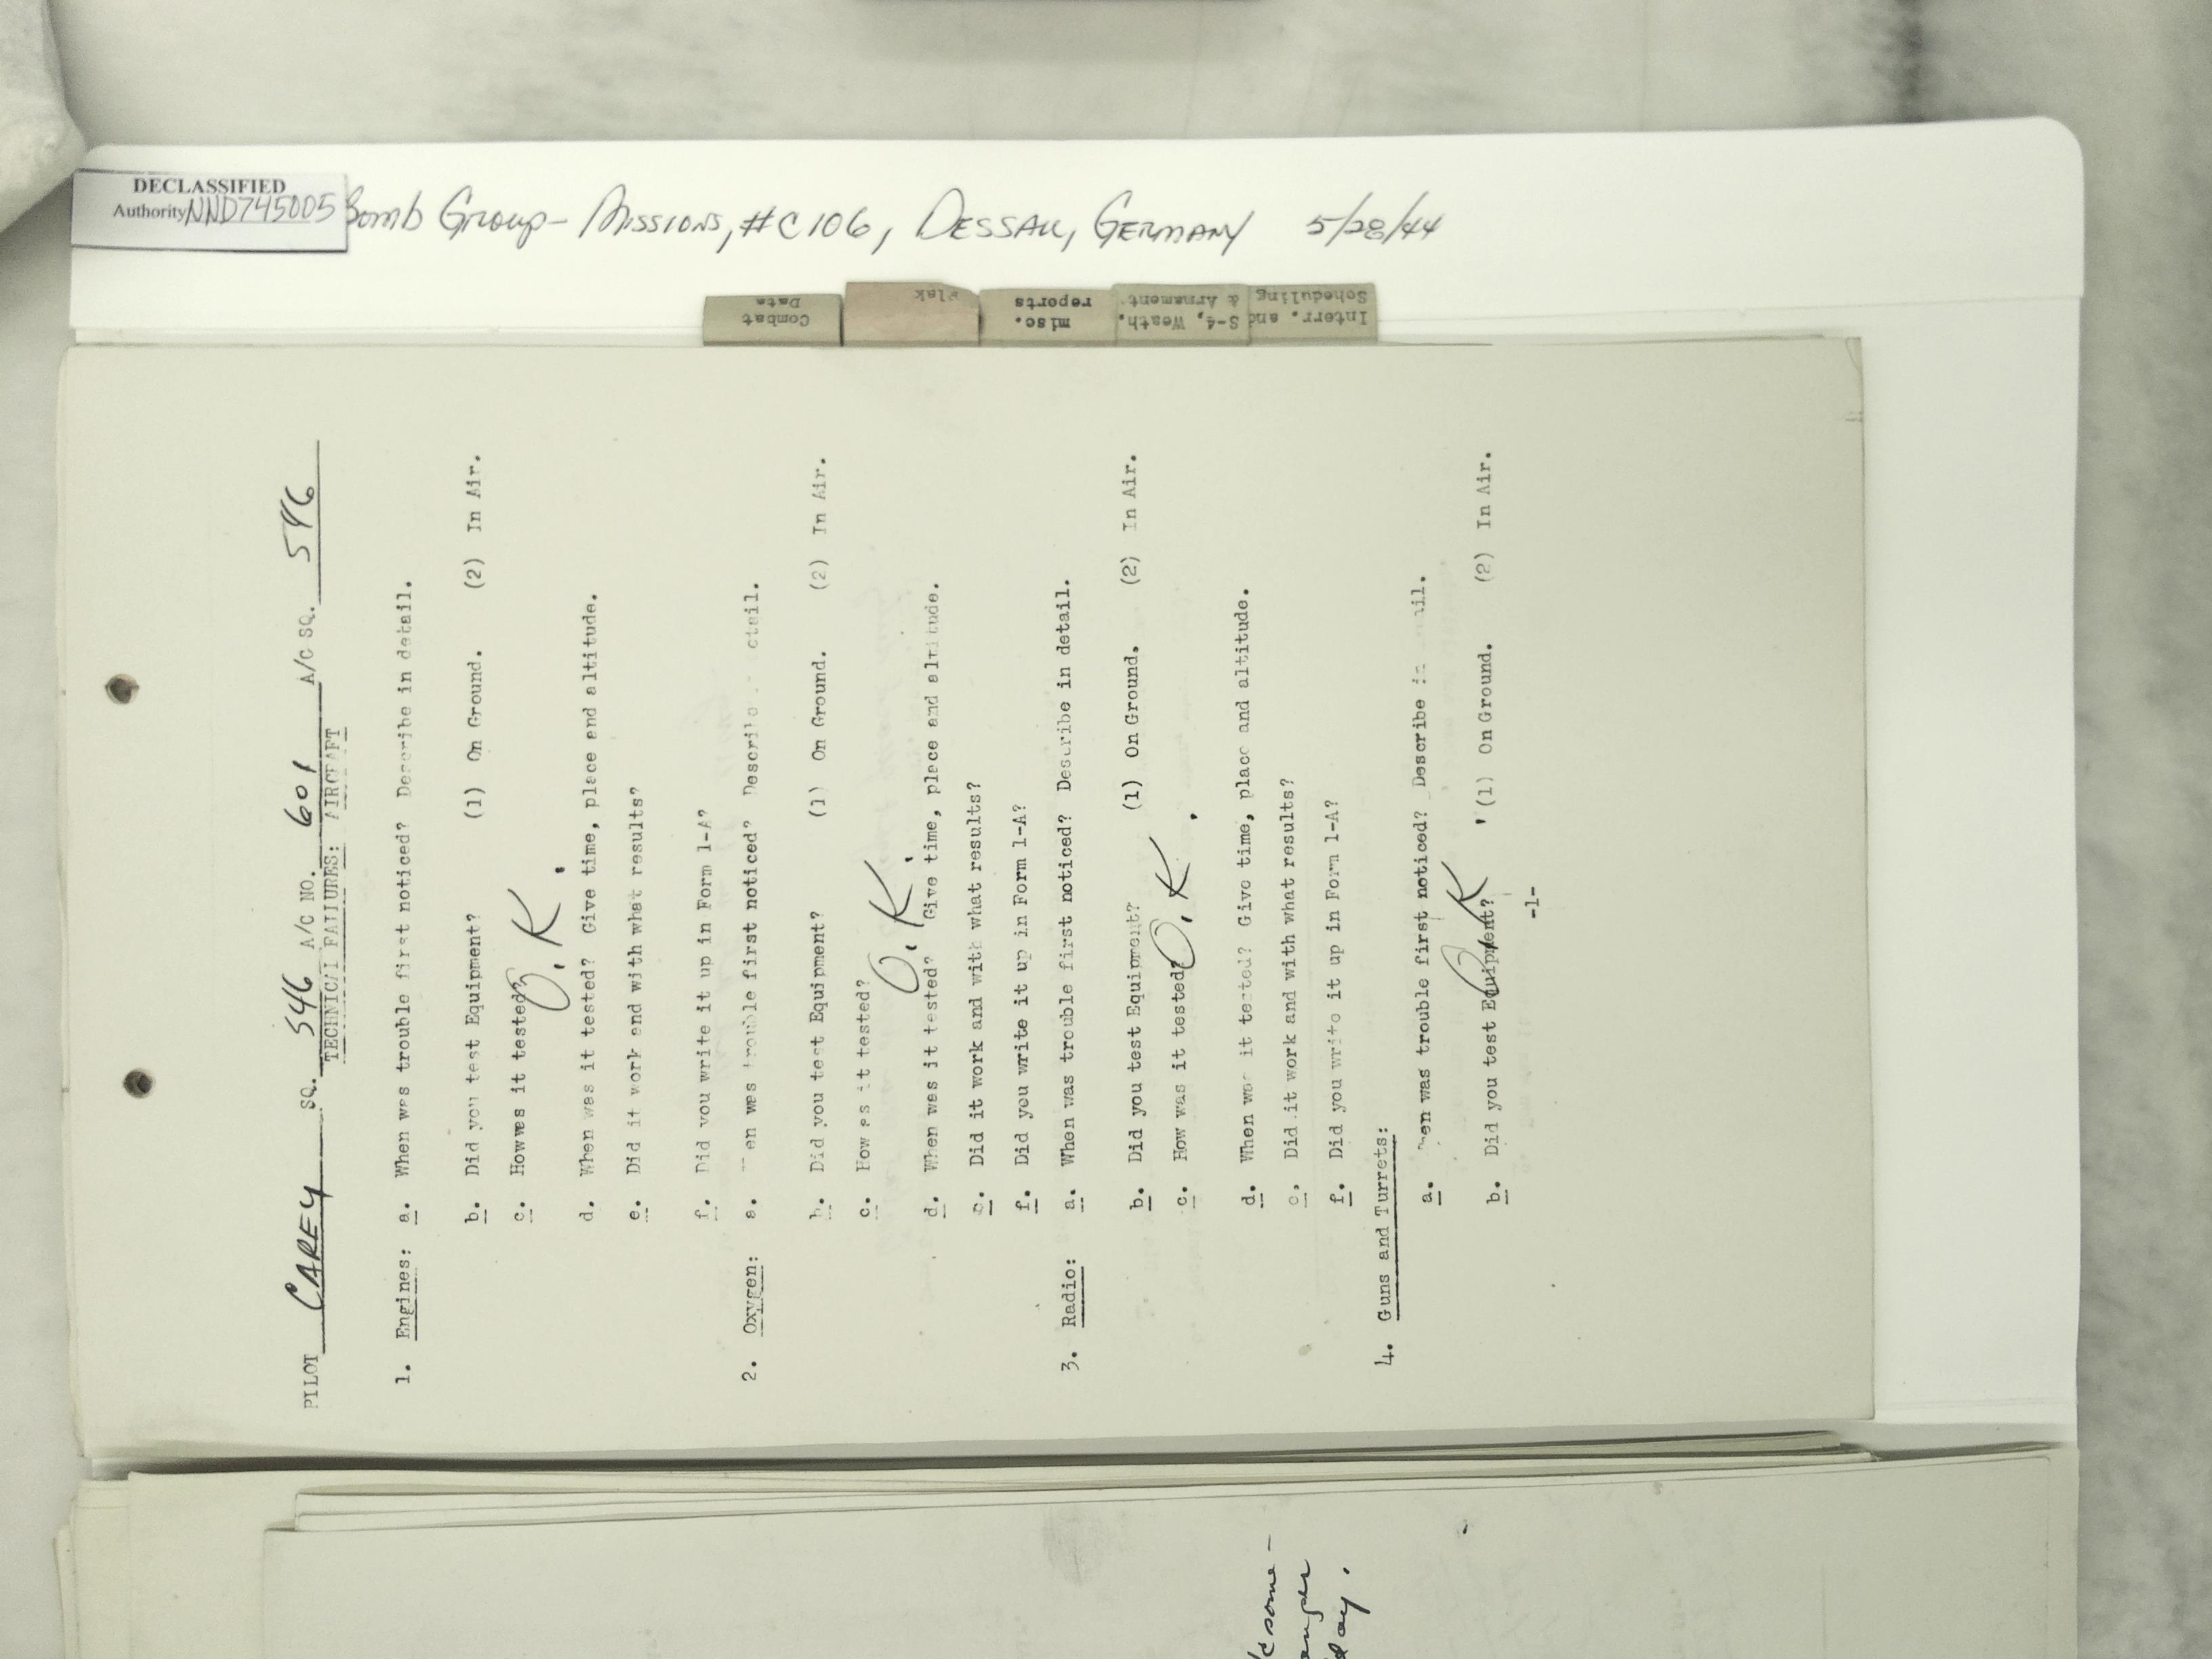 DECLASSIFIED
Authority NND745005
Bomb Group - Missions, #C106, Dessau, Germany 5/28/44
Combat
Data
Flak
misc.
reports
S-4, Weath.
& Armament
Interr. and
Scheduling
PILOT CAREY SQ. 546 A/C NO. 601 A/C SQ. 546
TECHNICAL FAILURES: AIRCRAFT
1. Engines: a. When was trouble first noticed? Describe in detail.
b. Did you test Equipment? (1) On Ground. (2) In Air.
c. How was it tested?
O.K.
d. When was it tested? Give time, place and altitude.
e. Did it work and with what results?
f. Did you write it up in Form 1-A?
2. Oxygen: a. When was trouble first noticed? Describe detail.
b. Did you test Equipment? (1) On Ground. (2) In Air.
c. How was it tested?
O.K.
d. When was it tested? Give time, place and altitude.
e. Did it work and with what results?
f. Did you write it up in Form 1-A?
3. Radio: a. When was trouble first noticed? Describe in detail.
b. Did you test Equipment? (1) On Ground. (2) In Air.
c. How was it tested? O.K.
d. When was it tested? Give time, place and altitude.
e. Did it work and with what results?
f. Did you write it up in Form 1-A?
4. Guns and Turrets:
a. When was trouble first noticed? Describe in detail.
OK
b. Did you test Equipment? (1) On Ground. (2) In Air.
-1-
some-
day.